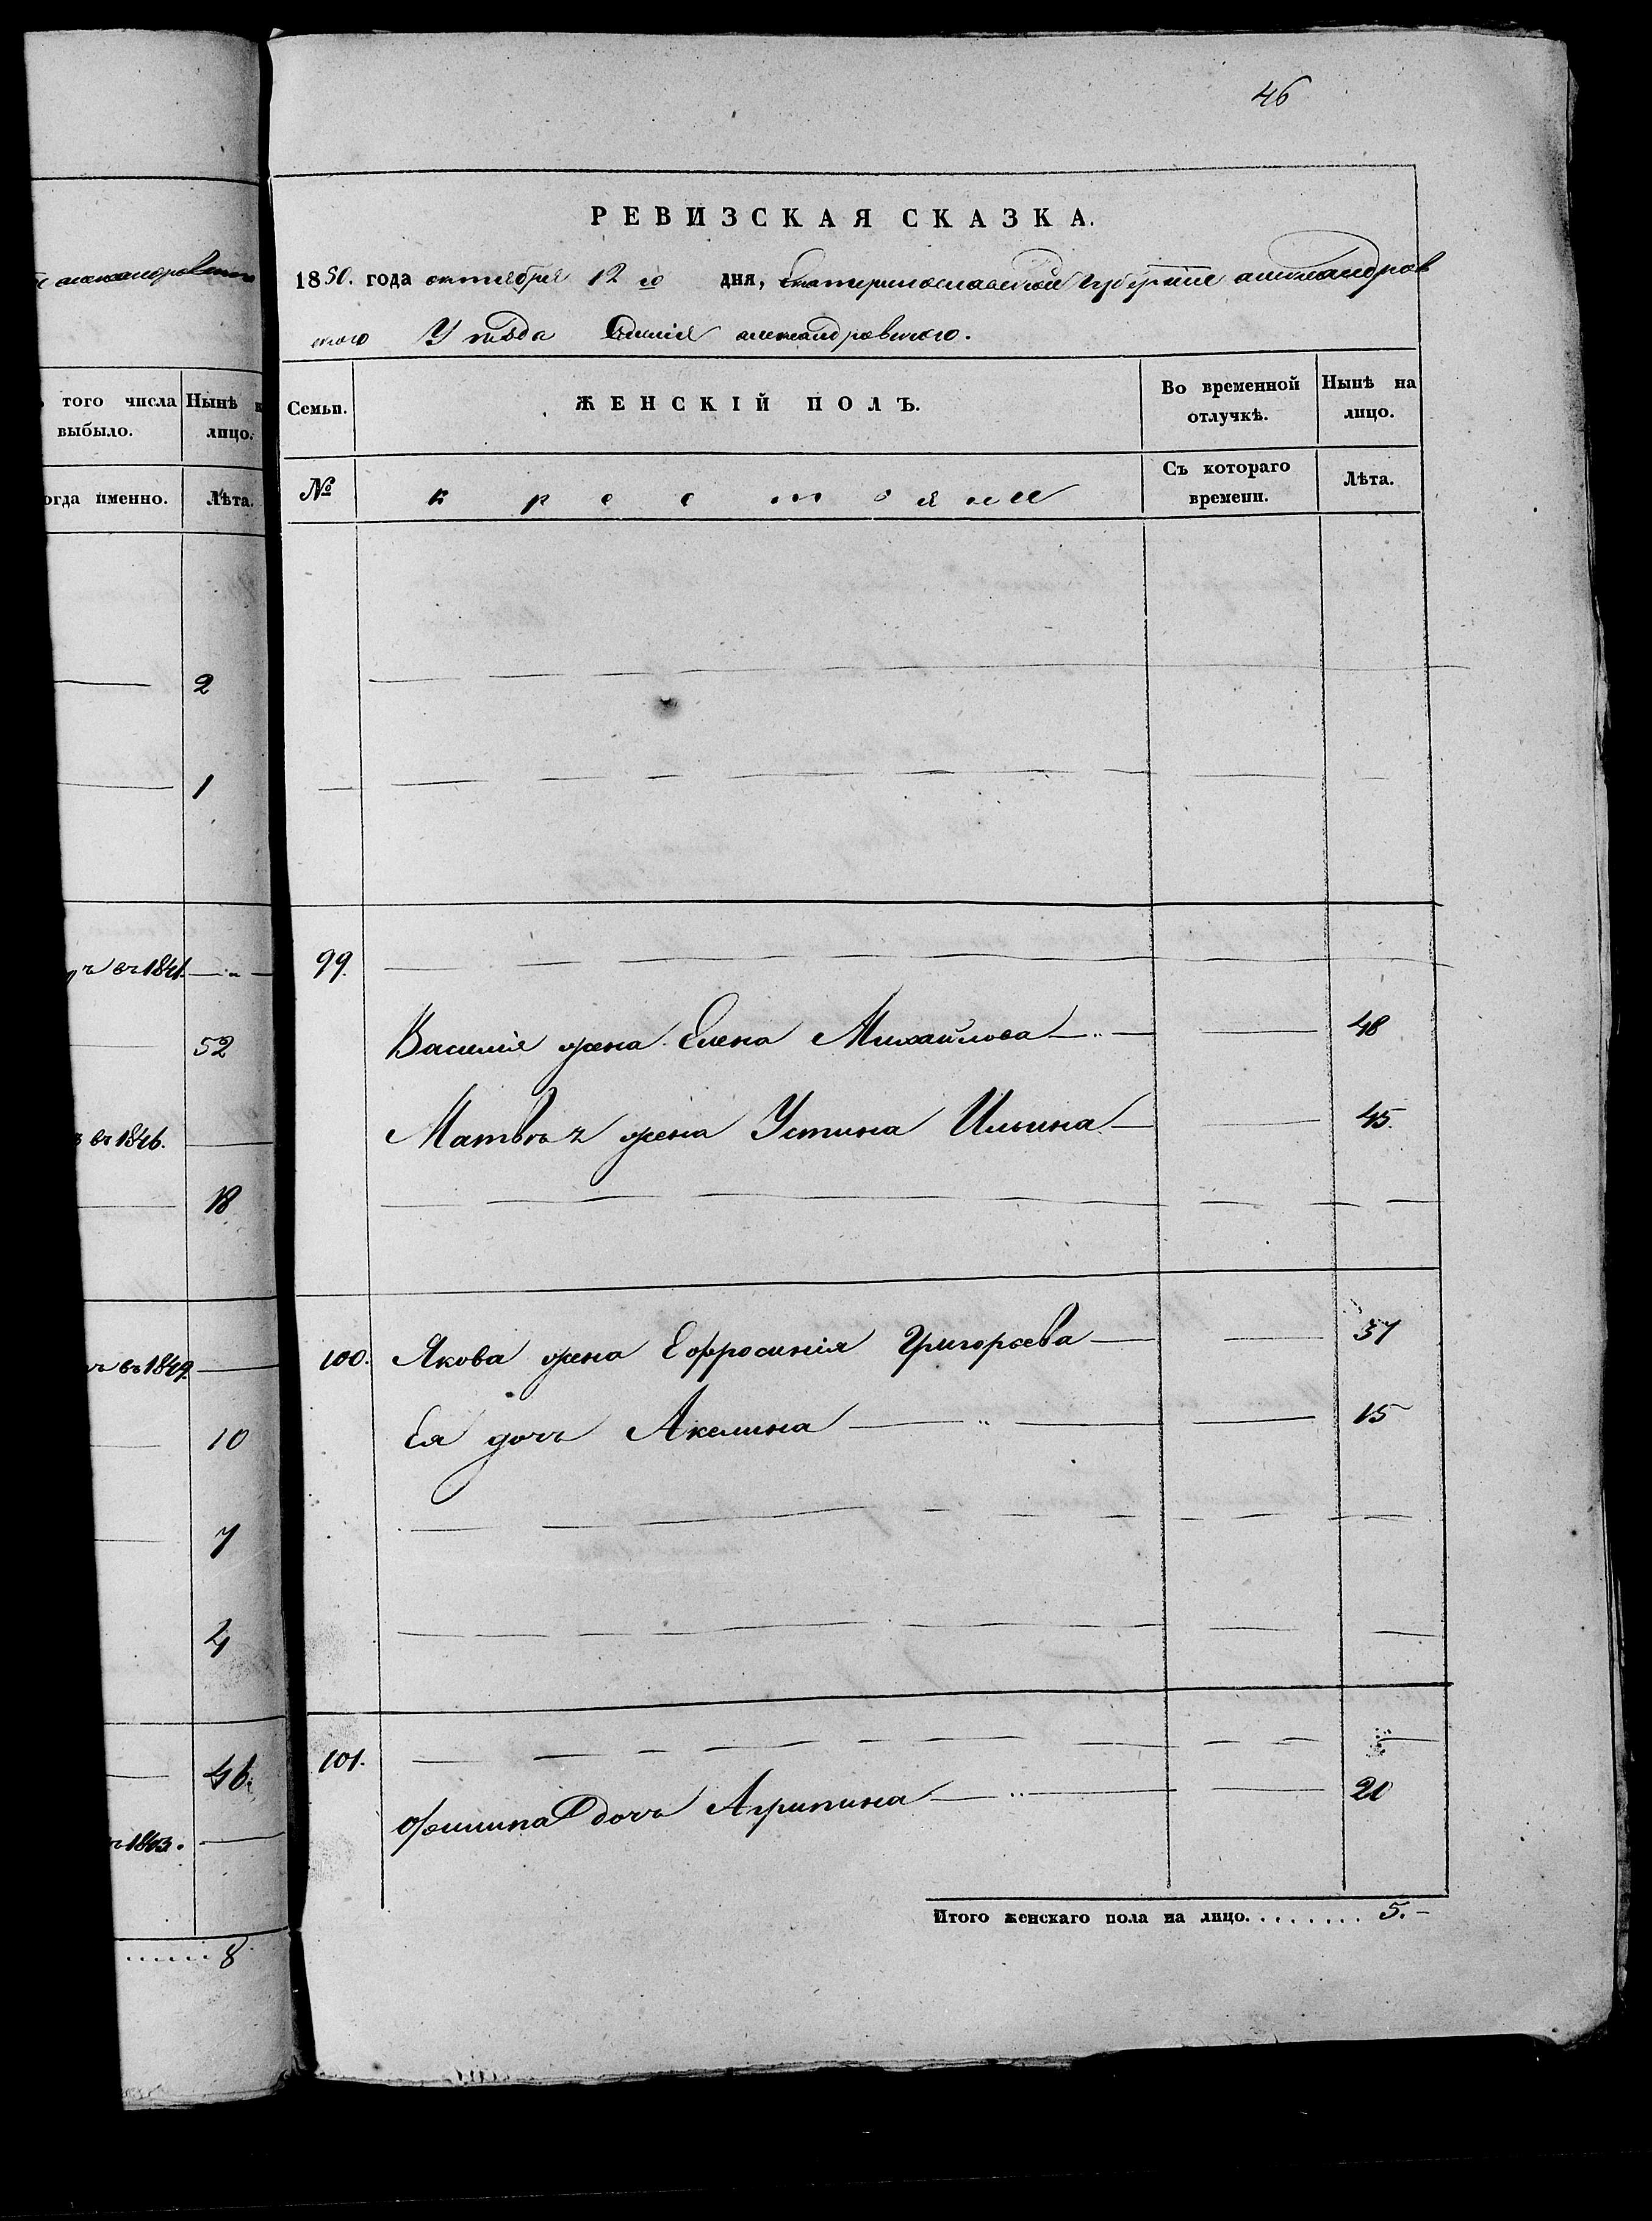 46
РЕВИЗСКАЯ СКАЗКА.
1850. года октября 12 го дня, Екатеринославской губерніи александров
ского Уезда александровского.
того числа Нынѣ
выбыло. лицо.
огда именно. Лѣта.
Семьи. ЖЕНСКІЙ ПОЛЪ. Во временной отлучкѣ. Нынѣ на лицо.
№ крестьяне Съ котораго времени. Лѣта.
2
1
въ 1841.
99.
52
Василія жена Елена Михайлова 48
въ 1846.
Матвѣя жена Устина Ильина 45
18
въ 1849.
100. Якова жена Ефросинія Григорьева 37
10
Ея дочь Акелина 15
7
4
101.
46.
Филипа дочь Агрипина 20
1843.
Итого женскаго пола на лицо. 5.
8